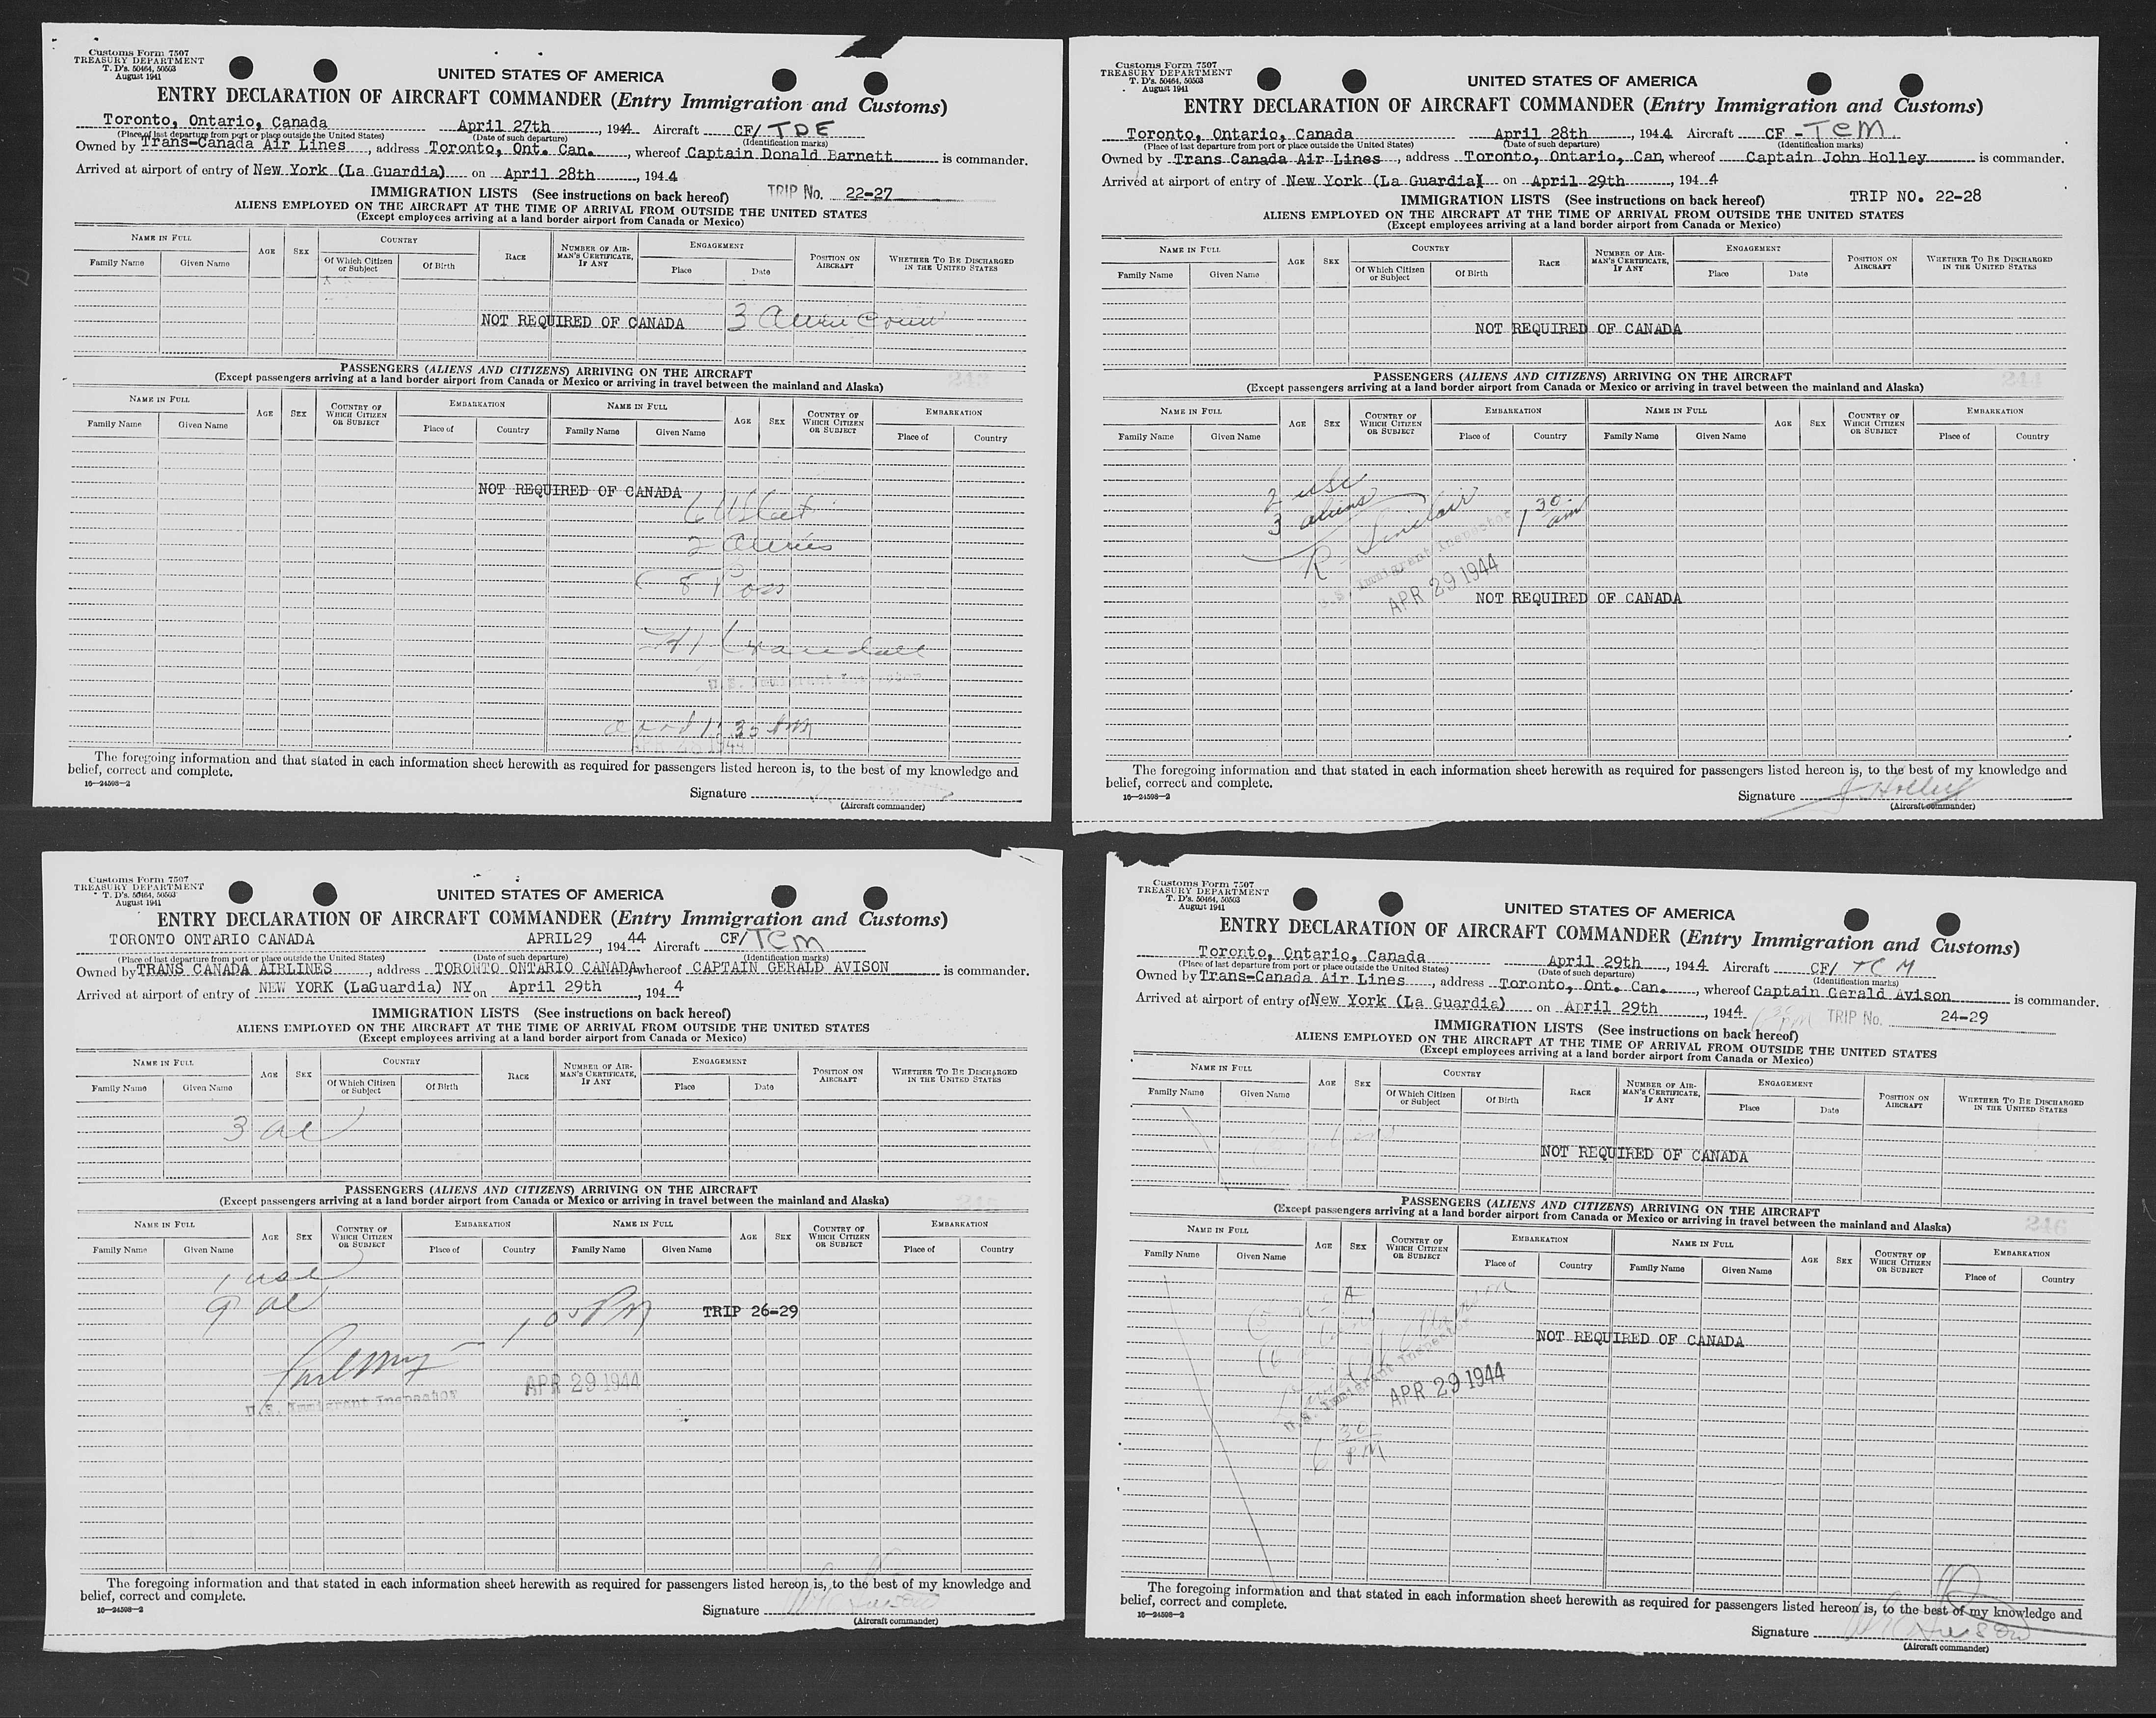 Customs Form 7507
TREASURY DEPARTMENT
T. D's. 50464, 50503
August 1941
UNITED STATES OF AMERICA
ENTRY DECLARATION OF AIRCRAFT COMMANDER (Entry Immigration and Customs)
Toronto, Ontario, Canada April 27th, 1944 Aircraft CF/ TDE
(Place of last departure from port or place outside the United States) (Date of such departure) (Identification marks)
Owned by Trans-Canada Air Lines, address Toronto, Ont. Can., whereof Captain Donald Barnett is commander.
Arrived at airport of entry of New York (La Guardia) on April 28th, 1944
IMMIGRATION LISTS (See instructions on back hereof) TRIP No. 22-27
ALIENS EMPLOYED ON THE AIRCRAFT AT THE TIME OF ARRIVAL FROM OUTSIDE THE UNITED STATES
(Except employees arriving at a land border airport from Canada or Mexico)
NAME IN FULL AGE SEX COUNTRY RACE NUMBER OF AIRMAN'S CERTIFICATE, IF ANY ENGAGEMENT POSITION ON AIRCRAFT WHETHER TO BE DISCHARGED IN THE UNITED STATES
Family Name Given Name Of Which Citizen or Subject Of Birth Place Date
NOT REQUIRED OF CANADA 3
PASSENGERS (ALIENS AND CITIZENS) ARRIVING ON THE AIRCRAFT
(Except passengers arriving at a land border airport from Canada or Mexico or arriving in travel between the mainland and Alaska)
NAME IN FULL AGE SEX COUNTRY OF WHICH CITIZEN OR SUBJECT EMBARKATION NAME IN FULL AGE SEX COUNTRY OF WHICH CITIZEN OR SUBJECT EMBARKATION
Family Name Given Name Place of Country Family Name Given Name Place of Country
NOT REQUIRED OF CANADA
6
2 Aliens
8 Pass
U.S. Immigrant Inspector
The foregoing information and that stated in each information sheet herewith as required for passengers listed hereon is, to the best of my knowledge and
belief, correct and complete.
16—24598-2
Signature
(Aircraft commander)
Customs Form 7507
TREASURY DEPARTMENT
T. D's. 50464, 50503
August 1941
UNITED STATES OF AMERICA
ENTRY DECLARATION OF AIRCRAFT COMMANDER (Entry Immigration and Customs)
Toronto, Ontario, Canada April 28th, 1944 Aircraft CF -TCM
(Place of last departure from port or place outside the United States) (Date of such departure) (Identification marks)
Owned by Trans Canada Air Lines, address Toronto, Ontario, Can, whereof Captain John Holley is commander.
Arrived at airport of entry of New York (La Guardia) on April 29th, 1944
IMMIGRATION LISTS (See instructions on back hereof) TRIP NO. 22-28
ALIENS EMPLOYED ON THE AIRCRAFT AT THE TIME OF ARRIVAL FROM OUTSIDE THE UNITED STATES
(Except employees arriving at a land border airport from Canada or Mexico)
NAME IN FULL AGE SEX COUNTRY RACE NUMBER OF AIRMAN'S CERTIFICATE, IF ANY ENGAGEMENT POSITION ON AIRCRAFT WHETHER TO BE DISCHARGED IN THE UNITED STATES
Family Name Given Name Of Which Citizen or Subject Of Birth Place Date
NOT REQUIRED OF CANADA
PASSENGERS (ALIENS AND CITIZENS) ARRIVING ON THE AIRCRAFT
(Except passengers arriving at a land border airport from Canada or Mexico or arriving in travel between the mainland and Alaska)
244
NAME IN FULL AGE SEX COUNTRY OF WHICH CITIZEN OR SUBJECT EMBARKATION NAME IN FULL AGE SEX COUNTRY OF WHICH CITIZEN OR SUBJECT EMBARKATION
Family Name Given Name Place of Country Family Name Given Name Place of Country
2 usc
3 aliens
R Sinclair 1 30 am
U.S. Immigrant Inspector
APR 29 1944
NOT REQUIRED OF CANADA
The foregoing information and that stated in each information sheet herewith as required for passengers listed hereon is, to the best of my knowledge and
belief, correct and complete.
16—24598-2
Signature J. Holley
(Aircraft commander)
Customs Form 7507
TREASURY DEPARTMENT
T. D's. 50464, 50503
August 1941
UNITED STATES OF AMERICA
ENTRY DECLARATION OF AIRCRAFT COMMANDER (Entry Immigration and Customs)
TORONTO ONTARIO CANADA APRIL29, 19444 Aircraft CF/TCM
(Place of last departure from port or place outside the United States) (Date of such departure) (Identification marks)
Owned by TRANS CANADA AIRLINES, address TORONTO ONTARIO CANADA whereof CAPTAIN GERALD AVISON is commander.
Arrived at airport of entry of NEW YORK (LaGuardia) NY on April 29th, 1944
IMMIGRATION LISTS (See instructions on back hereof)
ALIENS EMPLOYED ON THE AIRCRAFT AT THE TIME OF ARRIVAL FROM OUTSIDE THE UNITED STATES
(Except employees arriving at a land border airport from Canada or Mexico)
NAME IN FULL AGE SEX COUNTRY RACE NUMBER OF AIRMAN'S CERTIFICATE, IF ANY ENGAGEMENT POSITION ON AIRCRAFT WHETHER TO BE DISCHARGED IN THE UNITED STATES
Family Name Given Name Of Which Citizen or Subject Of Birth Place Date
3 al
PASSENGERS (ALIENS AND CITIZENS) ARRIVING ON THE AIRCRAFT
(Except passengers arriving at a land border airport from Canada or Mexico or arriving in travel between the mainland and Alaska)
NAME IN FULL AGE SEX COUNTRY OF WHICH CITIZEN OR SUBJECT EMBARKATION NAME IN FULL AGE SEX COUNTRY OF WHICH CITIZEN OR SUBJECT EMBARKATION
Family Name Given Name Place of Country Family Name Given Name Place of Country
1 usc
9 al
1 05 PM TRIP 26-29
APR 29 1944
U.S. Immigrant Inspector
The foregoing information and that stated in each information sheet herewith as required for passengers listed hereon is, to the best of my knowledge and
belief, correct and complete.
16—24598-2
Signature
(Aircraft commander)
Customs Form 7507
TREASURY DEPARTMENT
T. D's. 50464, 50503
August 1941
UNITED STATES OF AMERICA
ENTRY DECLARATION OF AIRCRAFT COMMANDER (Entry Immigration and Customs)
Toronto, Ontario, Canada April 29th, 1944 Aircraft CF/ TCM
(Place of last departure from port or place outside the United States) (Date of such departure) (Identification marks)
Owned by Trans-Canada Air Lines, address Toronto, Ont. Can., whereof Captain Gerald Avison is commander.
Arrived at airport of entry of New York (La Guardia) on April 29th, 1944 TRIP No. 24-29
IMMIGRATION LISTS (See instructions on back hereof)
ALIENS EMPLOYED ON THE AIRCRAFT AT THE TIME OF ARRIVAL FROM OUTSIDE THE UNITED STATES
(Except employees arriving at a land border airport from Canada or Mexico)
NAME IN FULL AGE SEX COUNTRY RACE NUMBER OF AIRMAN'S CERTIFICATE, IF ANY ENGAGEMENT POSITION ON AIRCRAFT WHETHER TO BE DISCHARGED IN THE UNITED STATES
Family Name Given Name Of Which Citizen or Subject Of Birth Place Date
NOT REQUIRED OF CANADA
PASSENGERS (ALIENS AND CITIZENS) ARRIVING ON THE AIRCRAFT
(Except passengers arriving at a land border airport from Canada or Mexico or arriving in travel between the mainland and Alaska)
246
NAME IN FULL AGE SEX COUNTRY OF WHICH CITIZEN OR SUBJECT EMBARKATION NAME IN FULL AGE SEX COUNTRY OF WHICH CITIZEN OR SUBJECT EMBARKATION
Family Name Given Name Place of Country Family Name Given Name Place of Country
NOT REQUIRED OF CANADA
U.S. Immigrant Inspector
APR 29 1944
6 30 PM
The foregoing information and that stated in each information sheet herewith as required for passengers listed hereon is, to the best of my knowledge and
belief, correct and complete.
16—24598-2
Signature
(Aircraft commander)